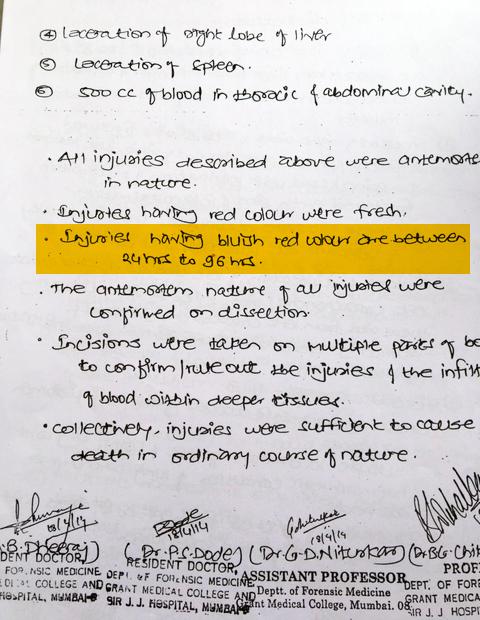 ④ laceration of right lobe of liver
⑤ Laceration of Spleen.
⑥ 500 cc of blood in thoracic & abdominal cavity.
• All injuries described above were antemorte
in nature.
• Injuries having red colour were fresh.
• Injuries having bluish red colour are between
24 hrs to 96 hrs.
• The antemortem nature of all injuries were
confirmed on dissection.
• Incisions were taken on multiple parts of bo
to confirm/rule out the injuries & the infilt
of blood within deeper tissues.
• collectively, injuries were sufficient to cause
death in ordinary course of nature.
18/4/14 18/4/14 18/4/14
.B. Dheeraj) (Dr. P.S. Dode) (Dr. G.D. Niturkar) (Dr BG. Chik
DENT DOCTOR, RESIDENT DOCTOR, ASSISTANT PROFESSOR PROF
FORENSIC MEDICINE DEPT. OF FORENSIC MEDICINE Deptt. of Forensic Medicine DEPT. OF FORE
MEDICAL COLLEGE AND GRANT MEDICAL COLLEGE AND Grant Medical College, Mumbai. 08 GRANT MEDICA
HOSPITAL, MUMBAI-8 SIR J.J. HOSPITAL, MUMBAI-8 SIR J. J HOSPIT